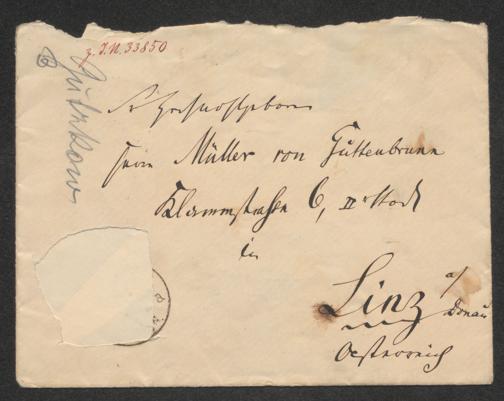 z. J.N. 33850
Gutzkow
Sr Hochwohlgeboren
Herrn Müller von Guttenbrunn
Klammstraße 6, II. Stock
in
Linz a/
Donau
Oesterreich